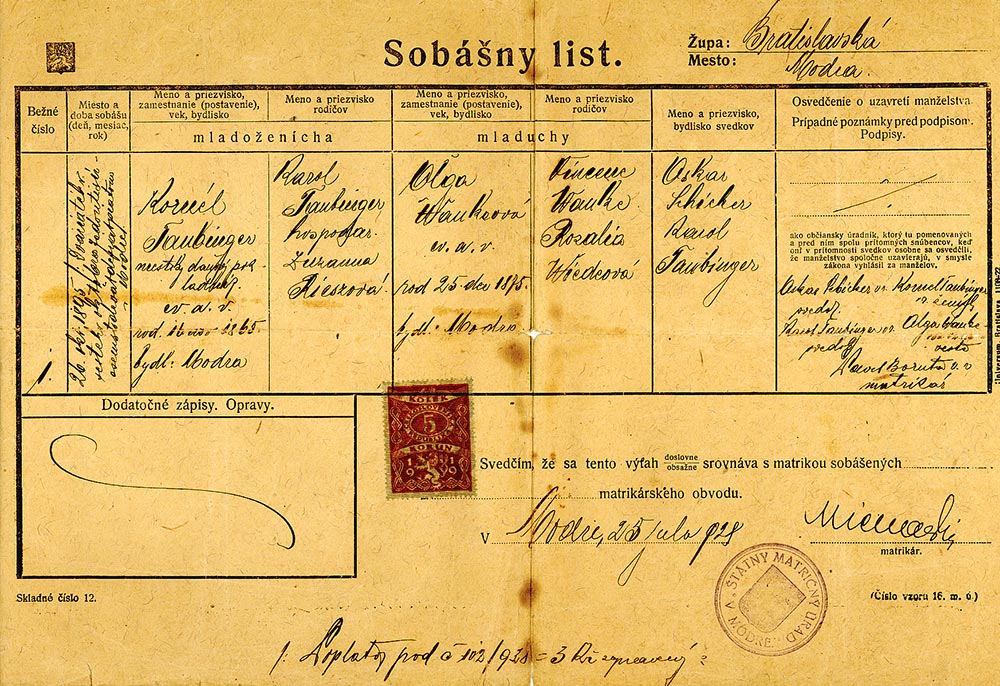 Sobášny list.
Župa: Bratislavská
Mesto: Modra.
Bežné číslo
Miesto a doba sobášu (deň, mesiac, rok)
Meno a priezvisko, zamestnanie (postavenie), vek, bydlisko
Meno a priezvisko rodičov
mladoženícha
Meno a priezvisko, zamestnanie (postavenie), vek, bydlisko
Meno a priezvisko rodičov
mladuchy
Meno a priezvisko, bydlisko svedkov
Osvedčenie o uzavretí manželstva.
Prípadné poznámky pred podpisom.
Podpisy.
1.
26. okt. 1895
Kornél
Taubinger
ev. a. v.
1865
bydl: Modra
Karol
Taubinger
hospodár
Zuzanna
Rieszová.
Olga
Wankeová
ev. a. v.
rod 25 dec 1875
bydl: Modra
Vincenc
Wanke
Rozalia
Oskar
Karol
Taubinger
ako občiansky úradník, ktorý tu pomenovaných
a pred ním spolu prítomných snúbencov, keď
oni v prítomnosti svedkov osobne sa osvedčili,
že manželstvo spoločne uzavierajú, v smysle
zákona vyhlásil za manželov.
Kornel Taubinger
Karol Taubinger vr. Olga Wanke
Pavel Boruta v. v
matrikár
Dodatočné zápisy. Opravy.
KOLEK
5
KORUN
1919
Svedčím, že sa tento výťah doslovne obsažne srovnáva s matrikou sobášených
matrikárského obvodu.
V Modre, 25 jula 928
matrikár.
ŠTÁTNY MATRIČNÝ ÚRAD V MODRE
Skladné číslo 12.
(Číslo vzoru 16. m. ú.)
Poplatok pod č 102/928 = 3 Kč